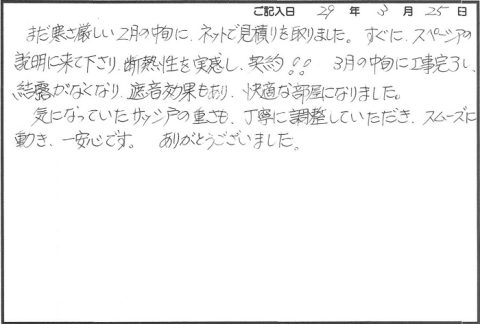 ご記入日 29 年 3 月 25 日
まだ寒さ厳しい2月の中旬に、ネットで見積りを取りました。すぐに、スペーシアの
説明に来て下さり、断熱性を実感し、契約!! 3月の中旬に工事完了し、
結露がなくなり、遮音効果もあり、快適な部屋になりました。
気になっていたサッシ戸の重さも、丁寧に調整していただき、スムーズに
動き、一安心です。 ありがとうございました。